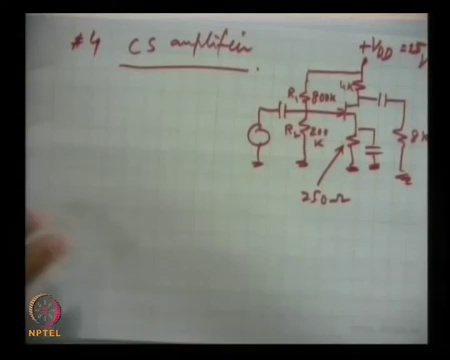 #4 CS amplifier
+VDD = 25V
4K
R1 800K
R2 200
K
8K
250Ω
NPTEL